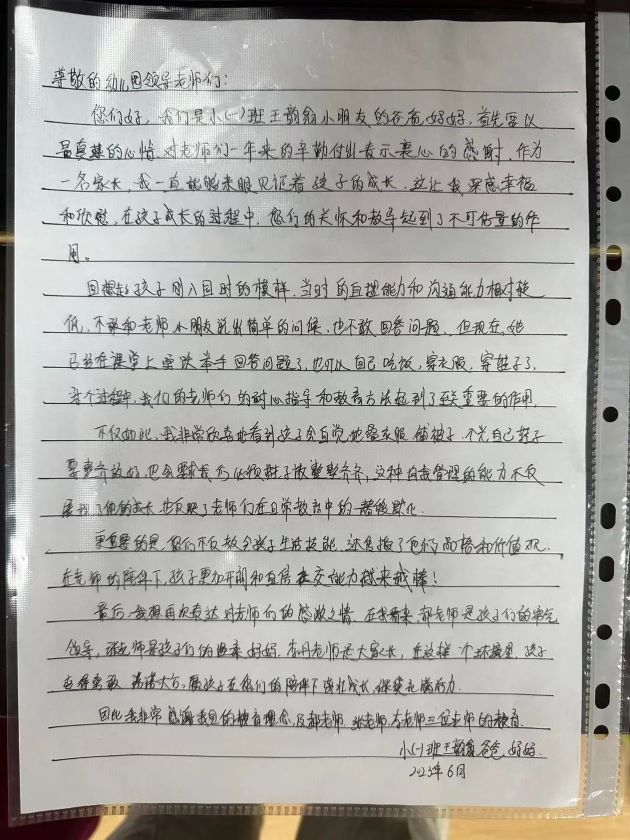 尊敬的幼儿园领导老师们：
您们好，我们是小(一)班王韵的小朋友的爸爸妈妈，首先要以
最真挚的心情，对老师们一年来的辛勤付出表示衷心的感谢，作为
一名家长，我一直能够亲眼见证着孩子的成长，这让我深感幸福
和欣慰，在孩子成长的过程中，您们的关怀和教导起到了不可估量的作
用。
回想起孩子刚入园时的模样，当时的自理能力和沟通能力相对较
低，不敢和老师、小朋友说出简单的问候，也不敢回答问题，但现在，她
已经在课堂上要次举手回答问题了，也可以自己吃饭，穿衣服，穿鞋子了，
这个过程中，我们的老师们的耐心指导和教育方法起到了至关重要的作用，
不仅如此，我非常欣喜地看到孩子会自觉地叠衣服、铺被子，不光自己鞋子
要摆齐放好，也会要求我们必须鞋子摆整整齐齐，这种自我管理的能力不仅
展现了他的成长，也反映了老师们在日常教育中的潜移默化。
更重要的是，您们不仅教会孩子生活技能，还培养了他们的品格和价值观，
在老师的陪伴下，孩子更加开朗和自信，社交能力越来越棒！
最后，我想再次表达对老师们的感激之情，在我看来，郝老师是孩子们的霸气
领导，张老师是孩子们的温柔妈妈，李老师是大家长，在这样一个环境里，孩子
变得勇敢、落落大方，愿孩子在您们的陪伴下茁壮成长，继续充满活力。
因此我非常感谢我园的教育理念，及郝老师、张老师、李老师三位老师的教育。
小(一)班王韵 爸爸、妈妈
2023年6月